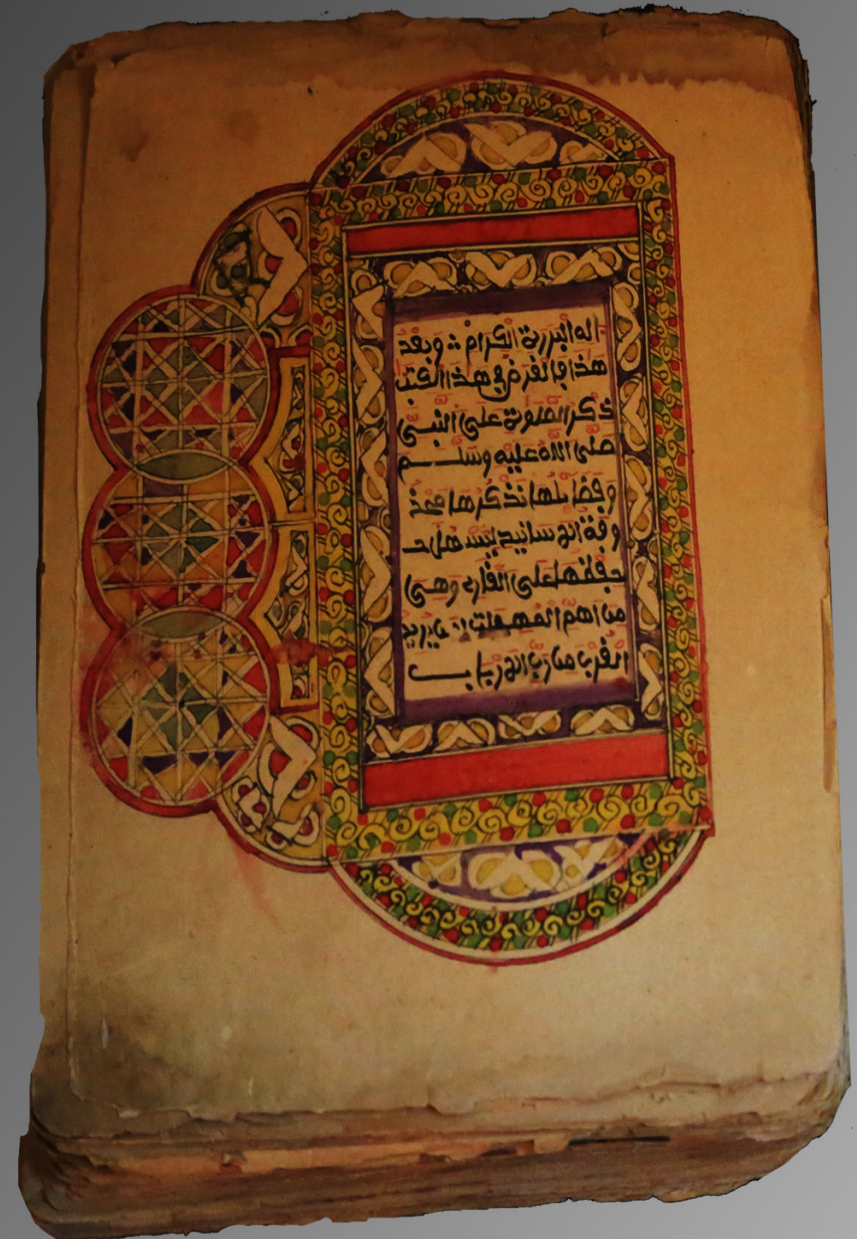 اله البررة الكرام ∴ وبعد
هذا فالغرض في هذا الكتب
ذكر الصلوة على النبي
صلى الله عليه وسلم
وفضايلها نذكرها محذ
وفة الاسانيد ليسهل
حفظها على القارئ وهي
من اهم المهمات لمن يريد
القرب من رب الارباب